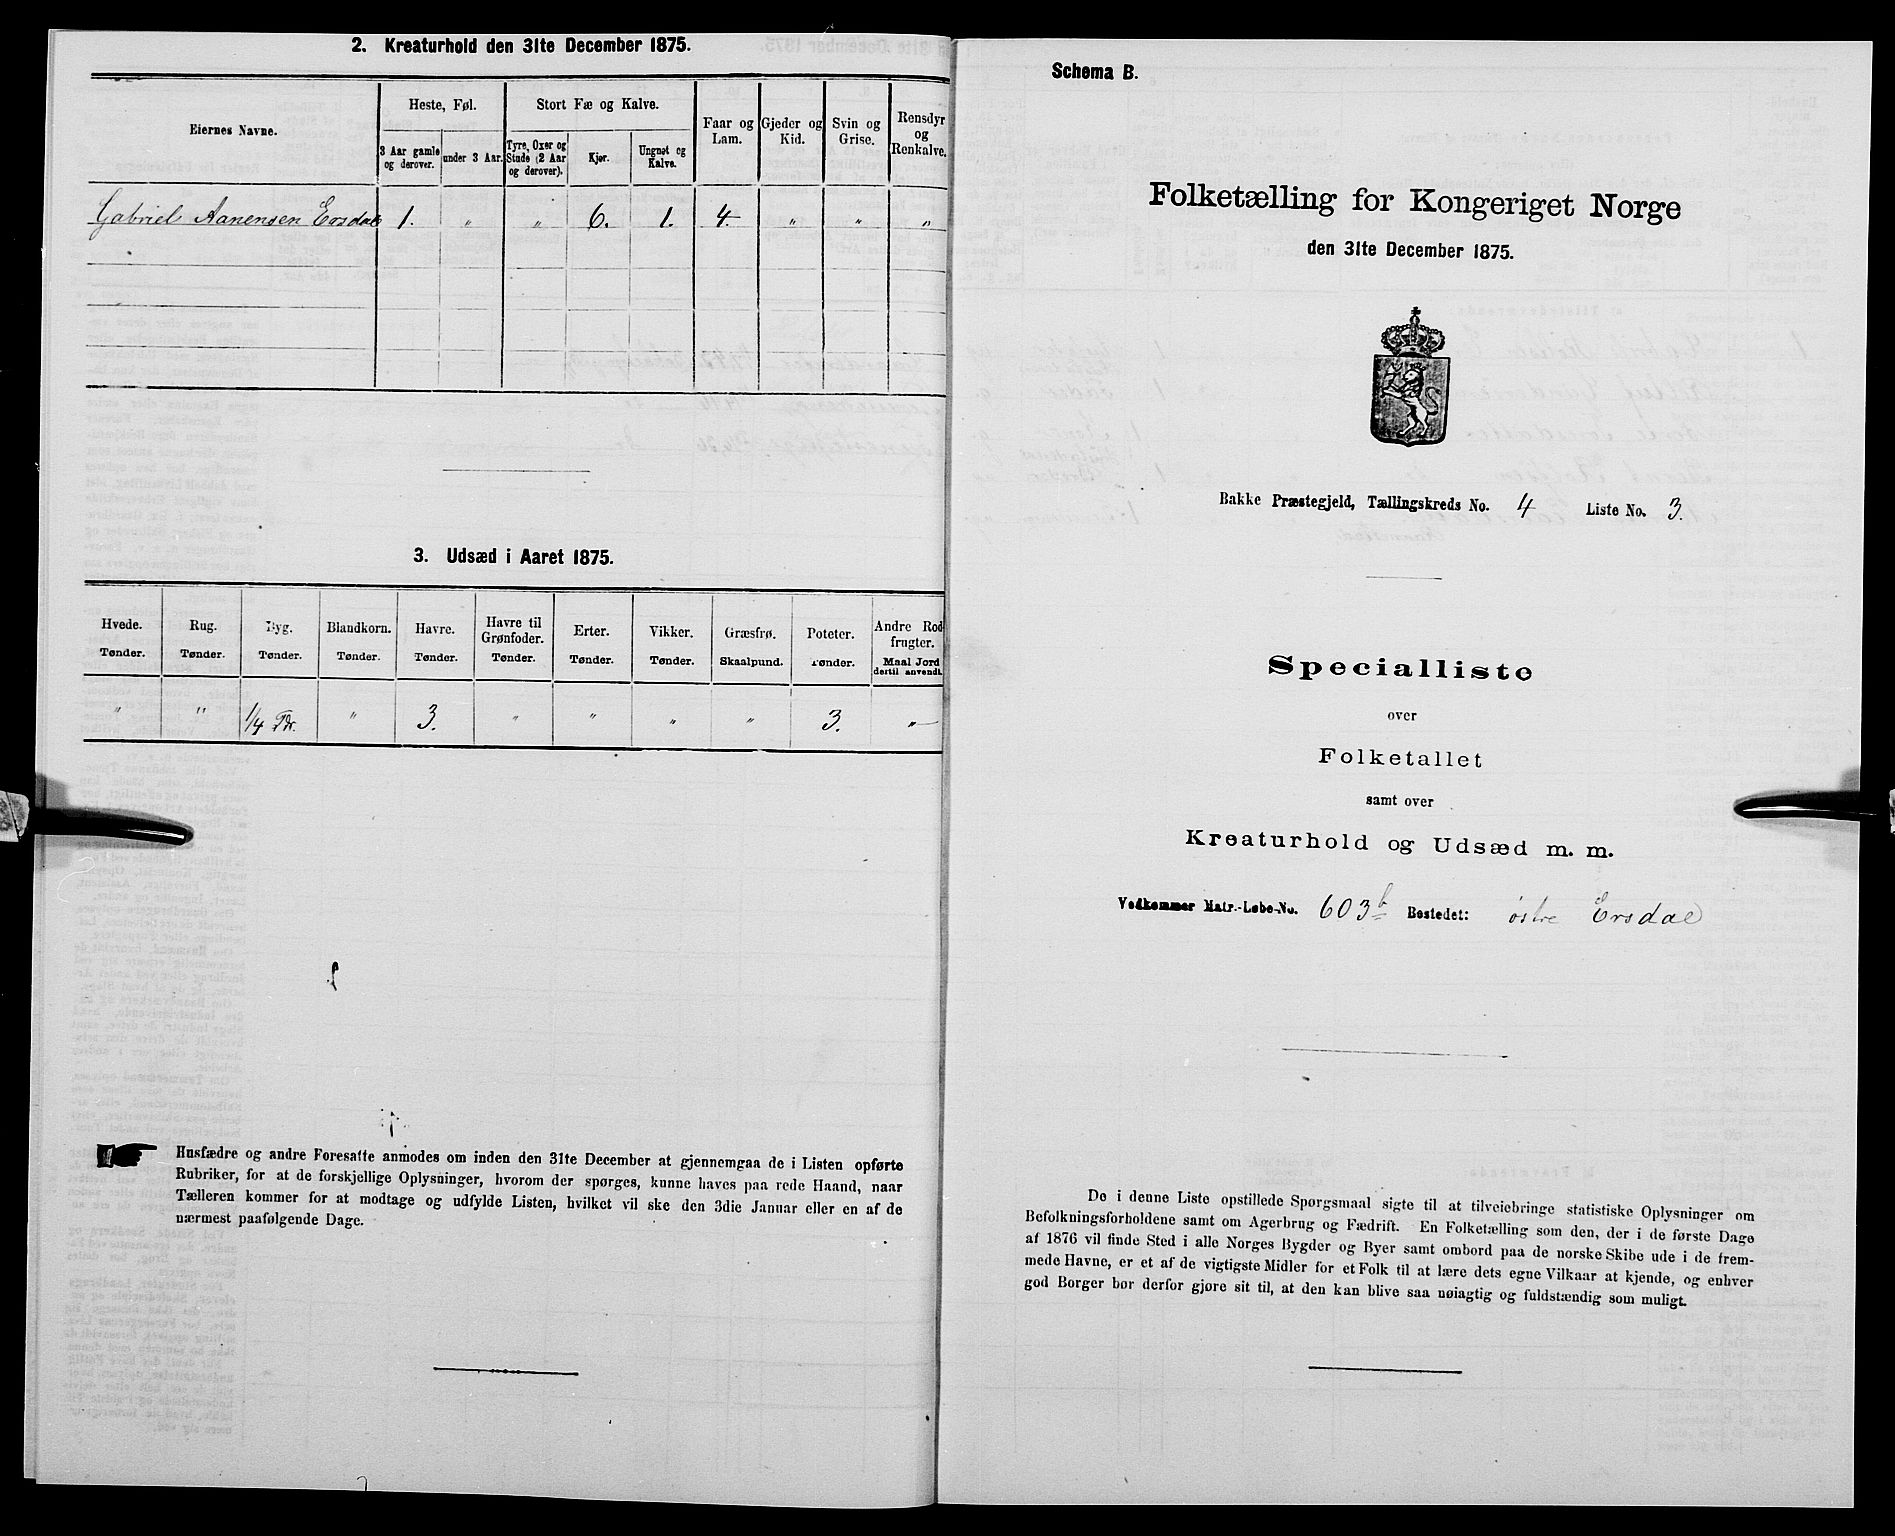 2. Kreaturhold den 31te December 1875.
Eiernes Navne.
Heste, Føl.
Stort Fæ og Kalve.
Faar og Lam.
Gjeder og Kid.
Svin og Grise.
Rensdyr og Renkalve.
3 Aar gamle og derover.
under 3 Aar.
Tyre, Oxer og Stude (2 Aar og derover).
Kjør.
Ungnøt og Kalve.
Gabriel Aanensen Ersdal 1. " " 6. 1. 4. " " "
3. Udsæd i Aaret 1875.
Hvede. Rug. Byg. Blandkorn. Havre. Havre til Grønfoder. Erter. Vikker. Græsfrø. Poteter. Andre Rodfrugter.
Tønder. Tønder. Tønder. Tønder. Tønder. Tønder. Tønder. Tønder. Skaalpund. Tønder. Maal Jord dertil anvendt.
" " 1/4 Tdr. " 3. " " " " 3. "
Husfædre og andre Foresatte anmodes om inden den 31te December at gjennemgaa de i Listen opførte
Rubriker, for at de forskjellige Oplysninger, hvorom der spørges, kunne haves paa rede Haand, naar
Tælleren kommer for at modtage og udfylde Listen, hvilket vil ske den 3die Januar eller en af de
nærmest paafølgende Dage.
Schema B.
Folketælling for Kongeriget Norge
den 31te December 1875.
Bakke Præstegjeld, Tællingskreds No. 4 Liste No. 3.
Specialliste
over
Folketallet
samt over
Kreaturhold og Udsæd m. m.
Vedkommer Matr.-Løbe-No. 603b Bostedet: østre Ersdal
De i denne Liste opstillede Spørgsmaal sigte til at tilveiebringe statistiske Oplysninger om
Befolkningsforholdene samt om Agerbrug og Fædrift. En Folketælling som den, der i de første Dage
af 1876 vil finde Sted i alle Norges Bygder og Byer samt ombord paa de norske Skibe ude i de frem-
mede Havne, er et af de vigtigste Midler for et Folk til at lære dets egne Vilkaar at kjende, og enhver
god Borger bør derfor gjøre sit til, at den kan blive saa nøiagtig og fuldstændig som muligt.